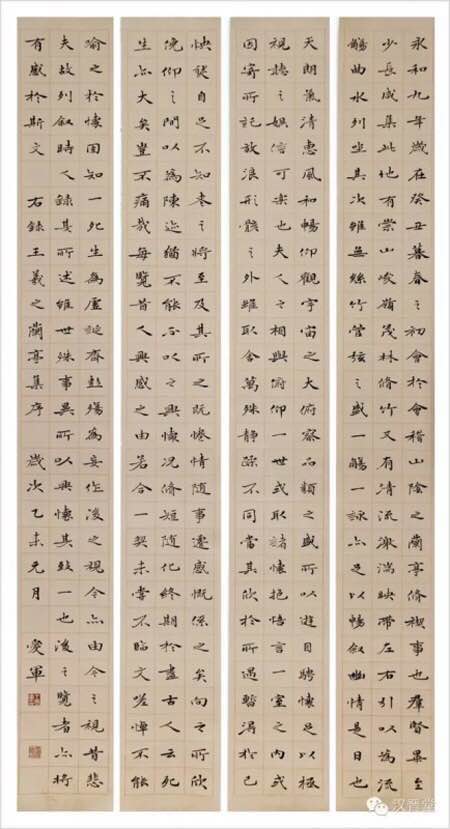 永和九年歲在癸丑暮春之初會於會稽山陰之蘭亭脩禊事也羣賢畢至
少長咸集此地有崇山峻嶺茂林脩竹又有清流激湍映帶左右引以為流
觴曲水列坐其次雖無絲竹管弦之盛一觴一詠亦足以暢敘幽情是日也
天朗氣清惠風和暢仰觀宇宙之大俯察品類之盛所以遊目騁懷足以極
視聽之娛信可樂也夫人之相與俯仰一世或取諸懷抱悟言一室之內或
因寄所託放浪形骸之外雖取舍萬殊靜躁不同當其欣於所遇暫得於己
怏然自足不知老之將至及其所之既惓情隨事遷感慨係之矣向之所欣
俛仰之間以為陳迹猶不能不以之興懷況脩短隨化終期於盡古人云死
生亦大矣豈不痛哉每覽昔人興感之由若合一契未嘗不臨文嗟悼不能
喻之於懷固知一死生為虛誕齊彭殤為妄作後之視今亦由今之視昔悲
夫故列敘時人錄其所述雖世殊事異所以興懷其致一也後之覽者亦將
有感於斯文 右錄王羲之蘭亭集序 歲次乙未元月 愛軍
汉晋堂